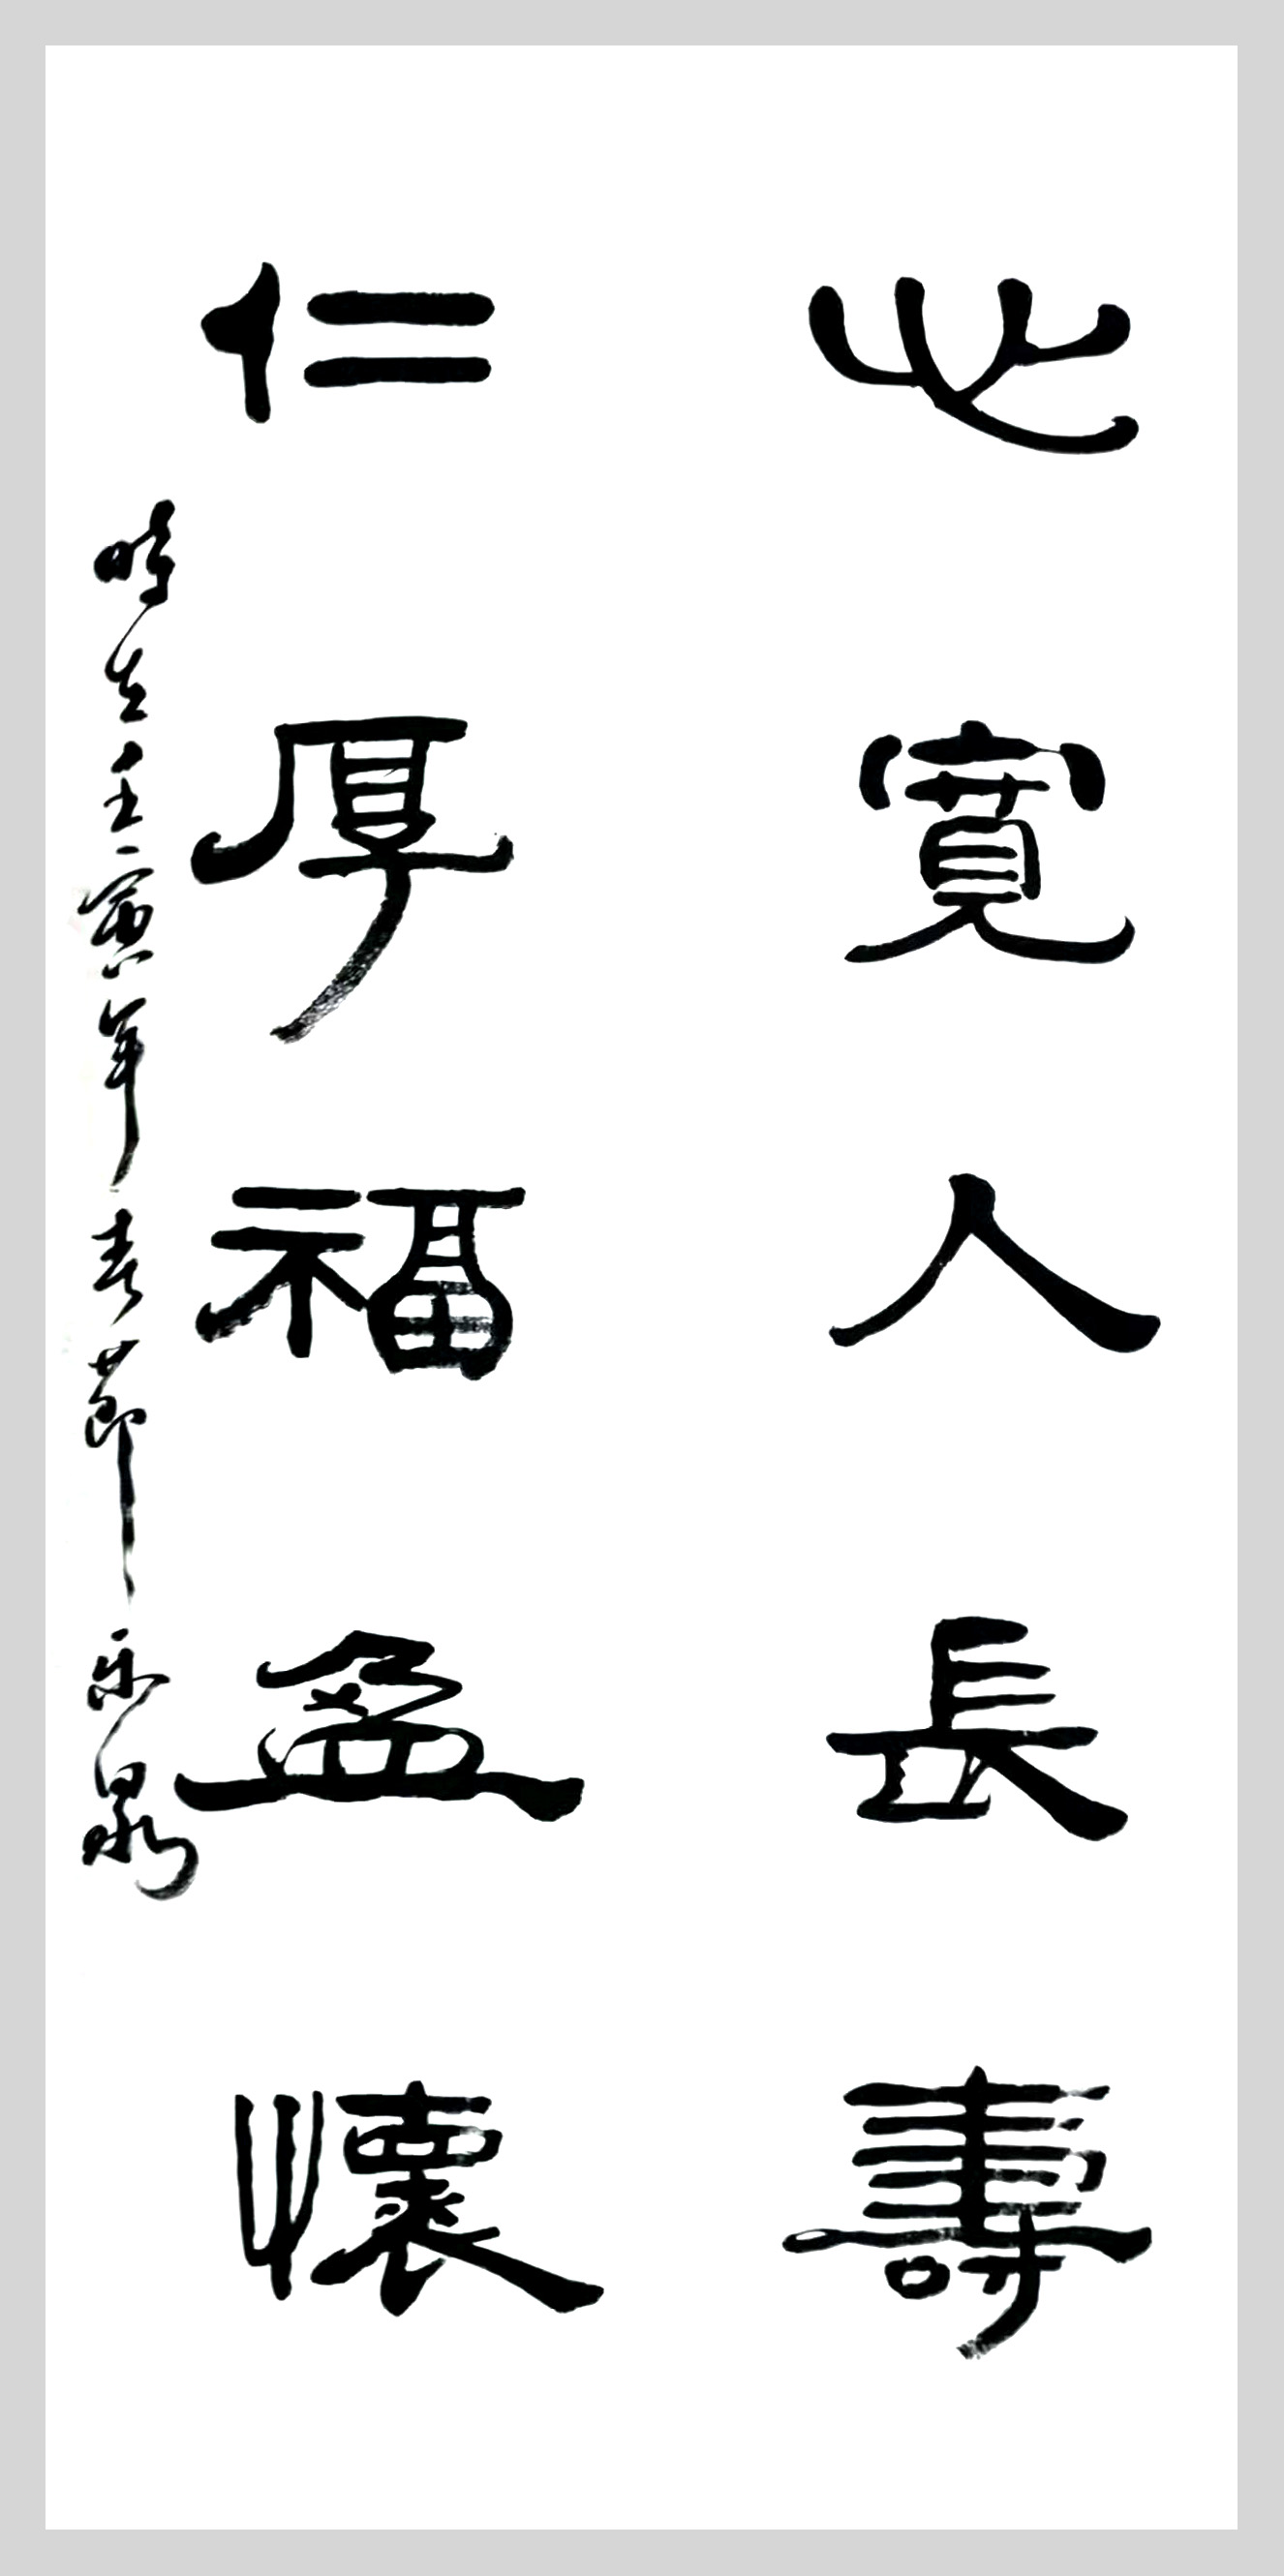 心寬人長壽
仁厚福盈懷
時在壬寅年春節乐泉